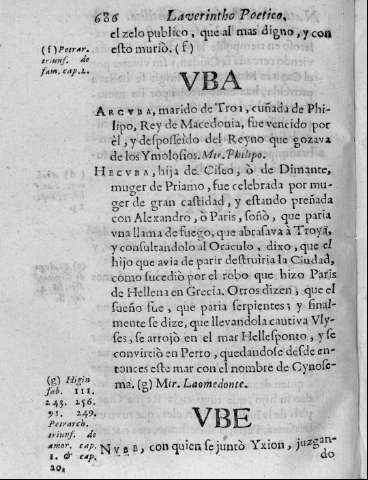 686 Laverintho Poetico.
el zelo publico, que al mas digno, y con
esto murió. (f)
(f) Petrar.
triunf. de
fam. cap. 2.
VBA
ARCVBA, marido de Troa, cuñada de Phi-
lipo, Rey de Macedonia, fue vencido por
èl, y desposseido del Reyno que gozava
de los Ymolosios. Mir. Philipo.
HECVBA, hija de Ciseo, ò de Dimante,
muger de Priamo, fue celebrada por mu-
ger de gran castidad, y estando preñada
con Alexandro, ò Paris, soñò, que paria
vna llama de fuego, que abrasava à Troya,
y consultandolo al Oraculo, dixo, que el
hijo que avia de parir destruiria la Ciudad,
como sucediò por el robo que hizo Paris
de Hellena en Grecia. Otros dizen, que el
sueño fue, que paria serpientes; y final-
mente se dize, que llevandola cautiva Vly-
ses, se arrojò en el mar Hellesponto, y se
convirtiò en Perro, quedandose desde en-
tonces este mar con el nombre de Cynose-
ma. (g) Mir. Laomedonte.
(g) Higin
fab. 111.
243. 256.
91. 249.
Petrarch.
triunf. de
amor. cap.
1. & cap.
20.
VBE
NVBE, con quien se juntò Yxion, juzgan-
do